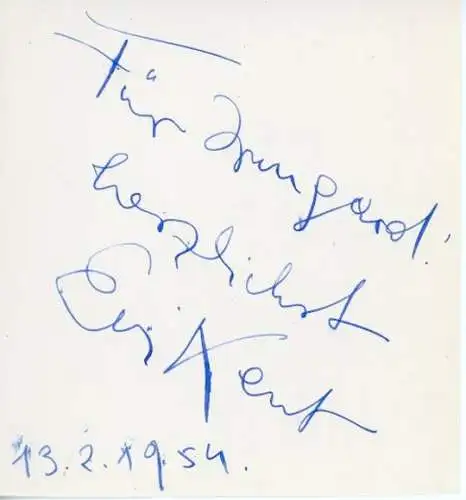 Für Irmgard!
herzlichst
Evi Kent
13.2.1954.